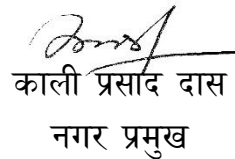 काली प्रसाद दास
नगर प्रमुख